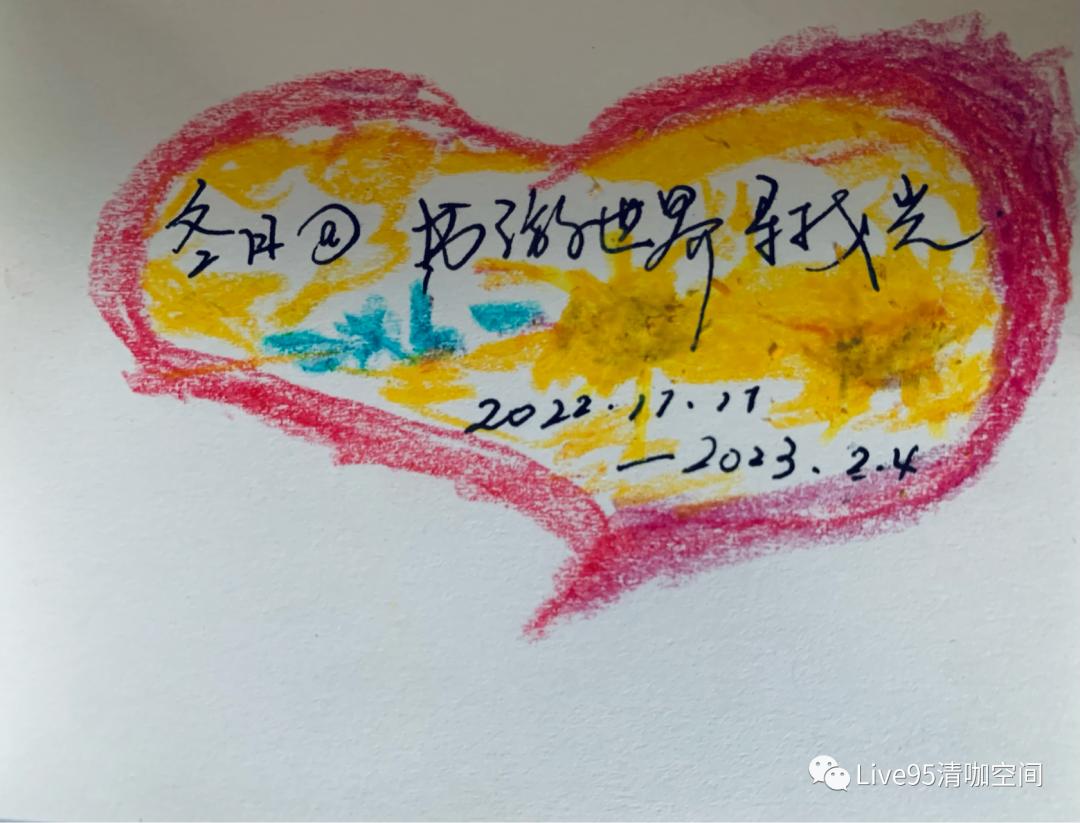 冬日 的世界寻找光
2022.11.11
—2023.2.4
Live95清咖空间